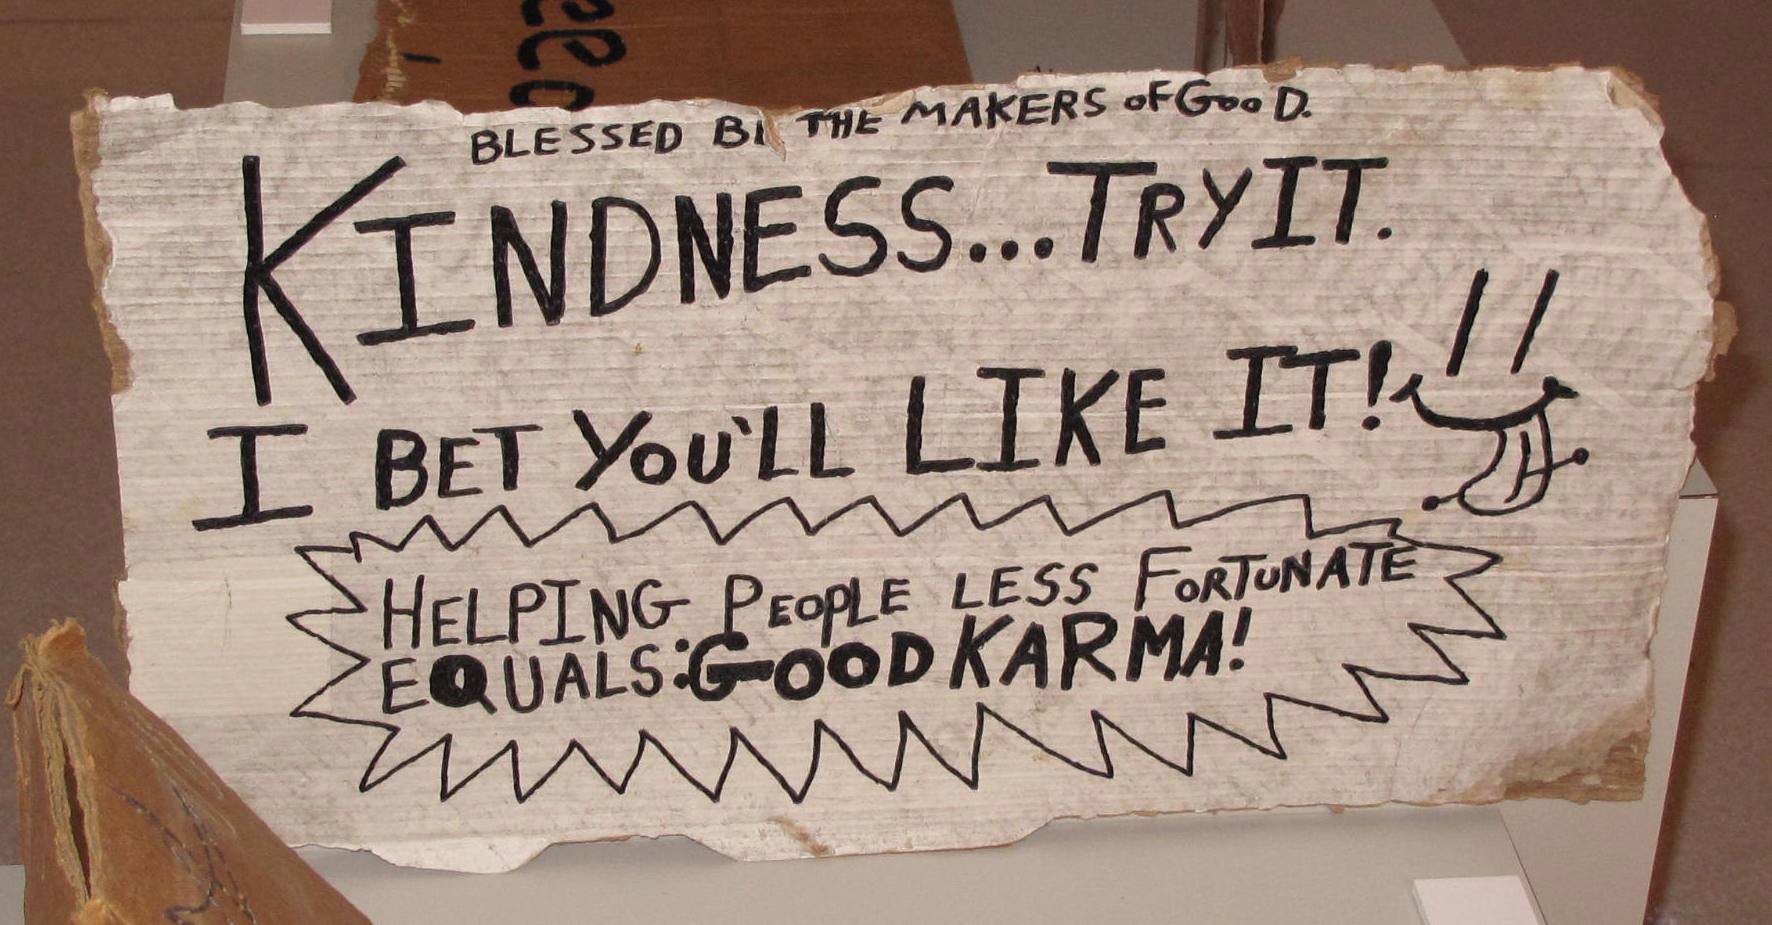 BLESSED BY THE MAKERS OF GOOD.
KINDNESS...TRY IT.
I BET YOU'LL LIKE IT!
HELPING PEOPLE LESS FORTUNATE
EQUALS: GOOD KARMA!